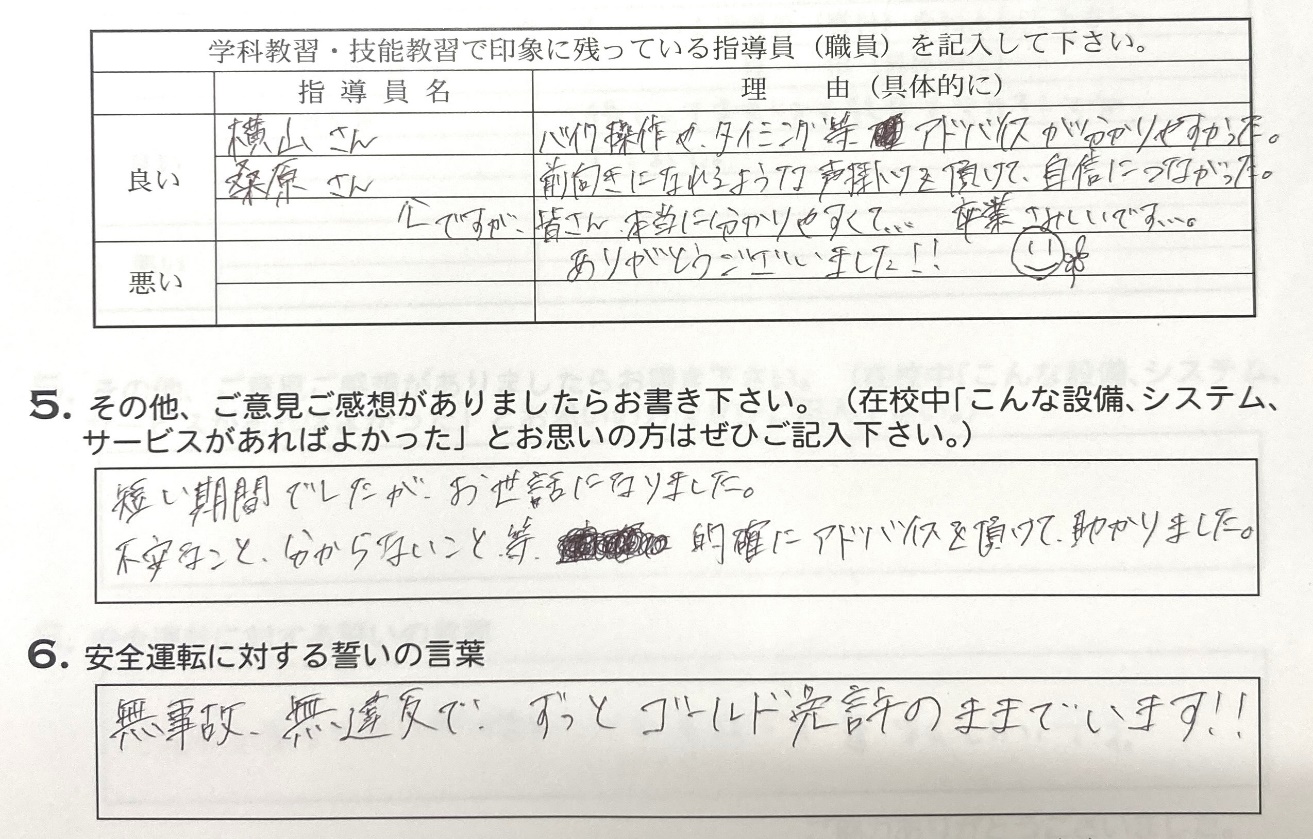 学科教習・技能教習で印象に残っている指導員（職員）を記入して下さい。
指導員名 理由（具体的に）
横山さん バイク操作や、タイミング等 アドバイスが分かりやすかった。
良い 桑原さん 前向きになれるような声掛けを頂けて、自信につながった。
ですが、皆さん、本当に分かりやすくて… 卒業さみしいです…。
悪い ありがとうございました!!
5. その他、ご意見ご感想がありましたらお書き下さい。（在校中「こんな設備、システム、
サービスがあればよかった」とお思いの方はぜひご記入下さい。）
短い期間でしたが、お世話になりました。
不安なこと、分からないこと、等、 的確にアドバイスを頂けて、助かりました。
6. 安全運転に対する誓いの言葉
無事故、無違反で、ずっとゴールド免許のままでいます!!